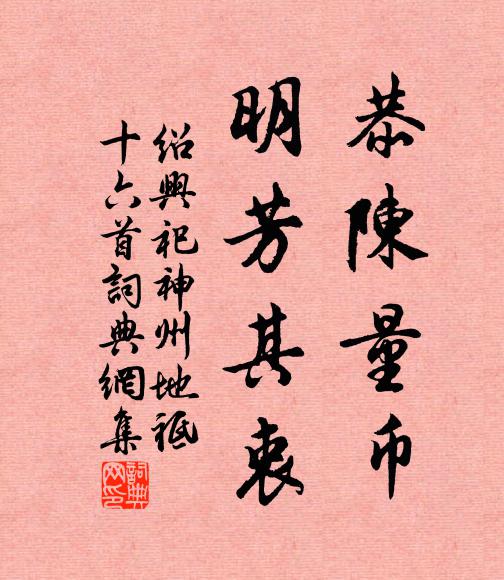 恭陳量币
明芳其衷
紹興祀神州地祗
十六首詞典網集
詞典
网印